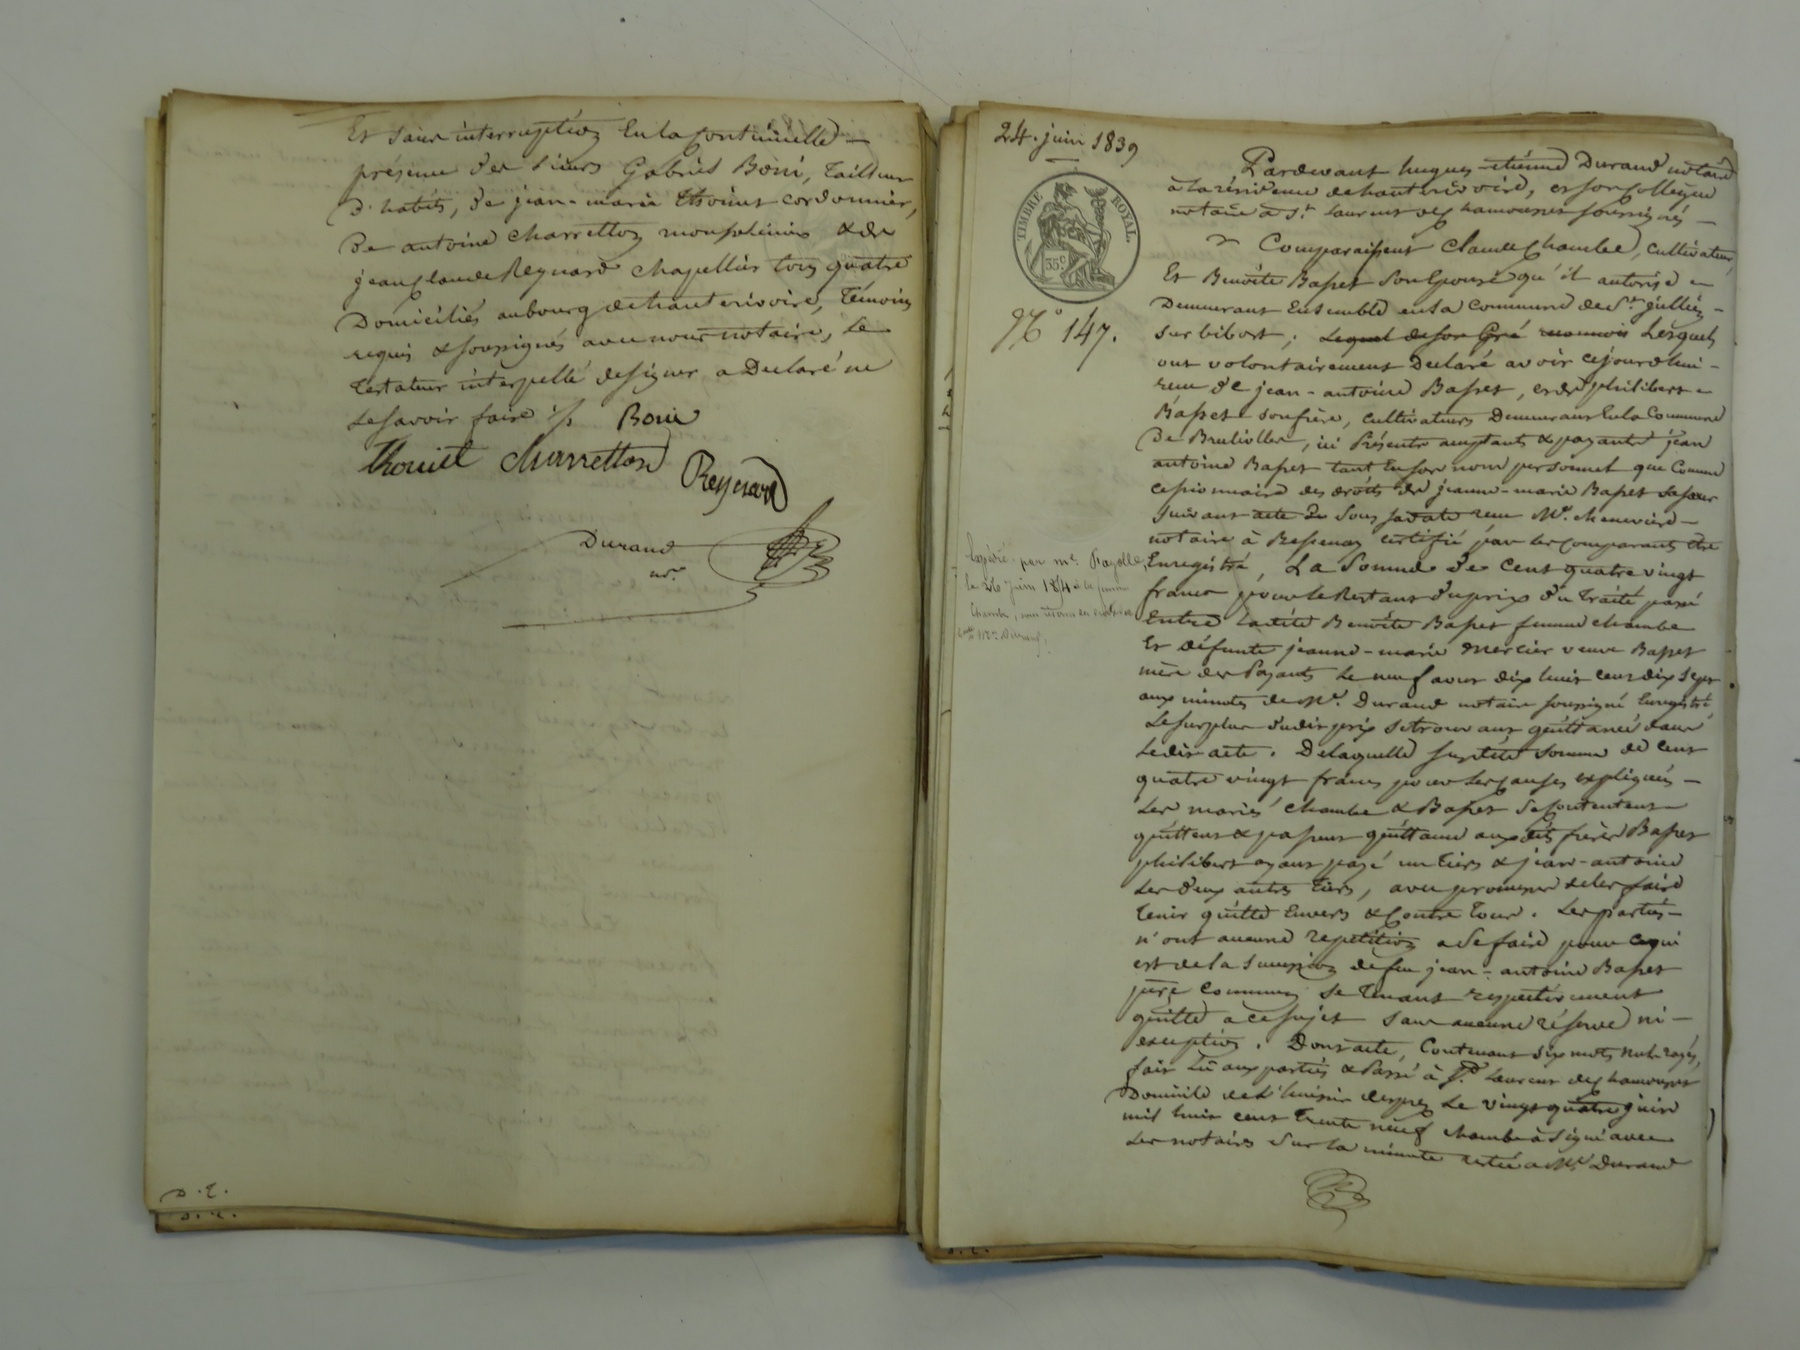 Et sans interruption En la Continuelle
présence des Sieurs Gabriel Boni, Tailleur
d'habits, de jean-marie Thoinet cordonnier,
De antoine Charretton monsplinier & de
jean Claude Reynard chapellier tous quatre
Domiciliés au bourg de hauterivoire, Témoins
requis & soussignés avec nous notaire, Le
Testateur interpellé de signer a Declaré ne
Le savoir faire ./. Boni
Charretton Reynard
Durand
nre
D. E.
24. juin 1839
TIMBRE ROYAL.
35 c
No 147.
Pardevant hugues-étienne Durand notaire
à la résidence de hauterivoire, et son Collègue
notaire à St. Laurent de Chamousset soussignés —
Comparaissent Claude Chambe, cultivateur,
Et Benoîte Basset son Epouse qu'il autorise
Demeurant Ensemble en la Commune de St. jullien
sur bibost ; Lequel de son Gré Lesquels
ont volontairement Declaré avoir cejourd'hui
reçu de jean-antoine Basset, et de philibert
Basset son frère, cultivateurs Demeurant En la Commune
De Brulioller, ici Présents acceptants & payants jean
antoine Basset tant En son nom personnel que Comme
cessionnaire des droits de jeanne-marie Basset sa sœur
suivant acte de sous sa date reçu Me. chenevière
notaire à Bessenay certifié par les comparants être
Enregistré, La Somme de Cent quatre vingt
francs pour le Restant du prix du Traité passé
Entre ladite Benoîte Basset femme Chambe
Et défunte jeanne-marie mercier veuve Basset
mère des Payants Le neuf aout dix huit cent dix sept
aux minutes de Me. Durand notaire soussigné Enregistré
Le surplus dudit prix se trouvant quittancé dans
Ledit acte. De laquelle susdite somme de Cent
quatre vingt francs pour Les causes expliquées —
Les mariés Chambe & Basset se Contentent
quittent & passent quittance auxdits frères Basset
philibert ayant payé un Tiers & jean-antoine
Les deux autres Tiers, avec promesse de les faire
Tenir quitte Envers & Contre Tous. Les parties
n'ont aucune repetition a se faire pour ce qui
est de la succession de feu jean-antoine Basset
père commun se Tenant respectivement
quitte a ce sujet sans aucune réserve ni
exception. Dont acte, Contenant six mots nuls rayés,
fait Lu aux parties & Passé à St. Laurent de Chamousset
Domicile de L'huissier Le vingt quatre juin
mil huit cent Trente neuf Chambe à signé avec
Les notaires Sur la minute restée a Me Durand
par me. Fayolle,
le 26 juin 1874